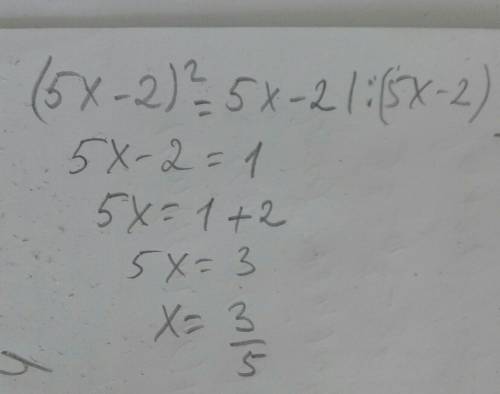 (5x-2)² = 5x-2 |:(5x-2)
5x-2 = 1
5x = 1+2
5x = 3
x = 3/5